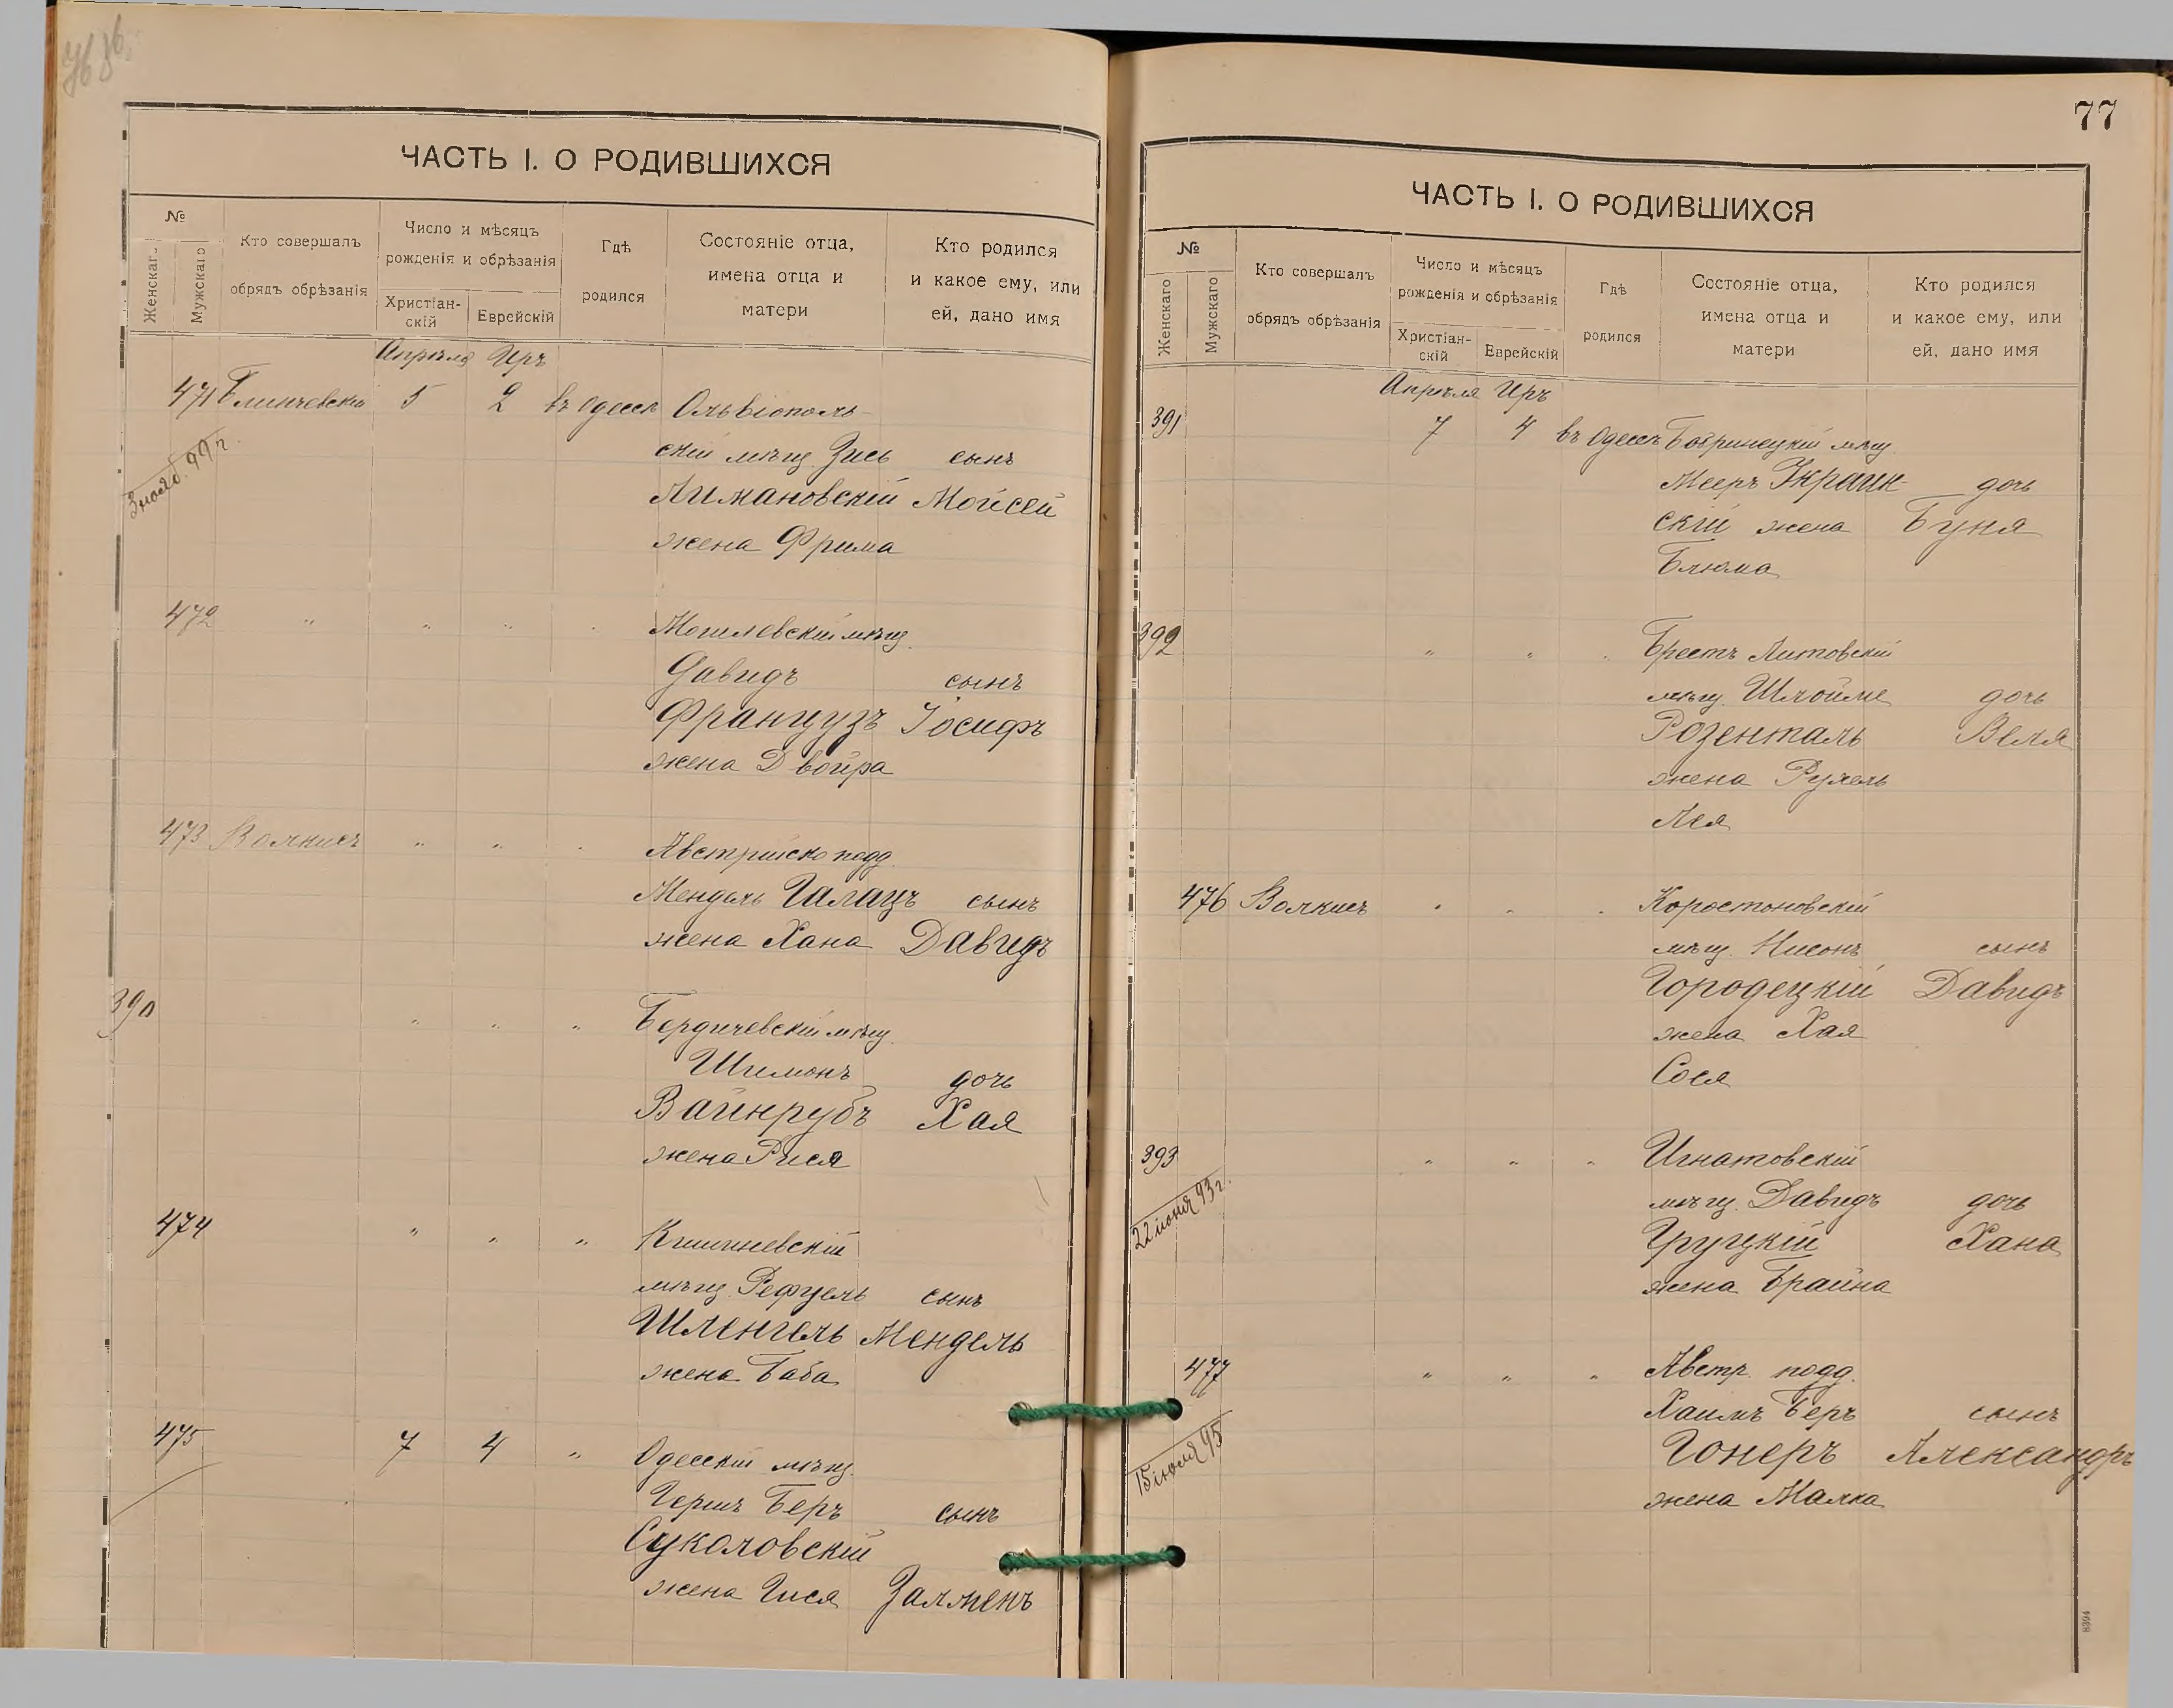 ЧАСТЬ I. О РОДИВШИХСЯ
№
Женскаг.
Мужскаго
Кто совершалъ
обрядъ обрѣзанія
Число и мѣсяцъ
рожденія и обрѣзанія
Христіан-
скій
Еврейскій
Гдѣ
родился
Состояніе отца,
имена отца и
матери
Кто родился
и какое ему, или
ей, дано имя
Апрѣля Иръ
471 5 2 въ Одессѣ Ольвіополь-
скій мѣщ Зись сынъ
3 нояб. 99 г.
Лимановскій Мойсей
жена Фрима
472 " " " " Могилевскій мѣщ.
Давидъ сынъ
Французъ Іосифъ
жена Двойра
473 " " " Австрійско подд.
Мендель Галацъ сынъ
жена Хана Давидъ
390 " " " Бердичевскій мѣщ.
Шимонъ дочь
Вайнрубъ Хая
жена Рися
474 " " " Кишиневскій
мѣщ. Рефуель сынъ
Шленгель Мендель
жена Баба
475 7 4 " Одесскій мѣщ.
Гершъ Беръ сынъ
Суколовскій
жена Гися Залменъ
77
ЧАСТЬ I. О РОДИВШИХСЯ
№
Женскаго
Мужскаго
Кто совершалъ
обрядъ обрѣзанія
Число и мѣсяцъ
рожденія и обрѣзанія
Христіан-
скій
Еврейскій
Гдѣ
родился
Состояніе отца,
имена отца и
матери
Кто родился
и какое ему, или
ей, дано имя
Апрѣля Иръ
391 7 4 въ Одессѣ Бобринецкій мѣщ.
Мееръ Украин- дочь
скій жена Буня
Блюма
392 " " " Брестъ Литовскій
мѣщ. Шлойме дочь
Розенталь Веля
жена Рухель
Лея
476 " " " Коростоновскій
мѣщ. Нисонъ сынъ
Городецкій Давидъ
жена Хая
Сося
393 " " " Игнатовскій
22 іюня 93 г.
мѣщ. Давидъ дочь
Хана
жена Брайна
477 " " " Австр. подд.
Хаимъ Беръ сынъ
15 іюля 95
Гонеръ Александръ
жена Малка
8394